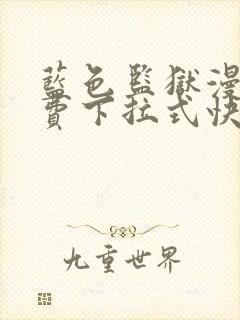 藍色監獄漫
費下拉式快
九重世界